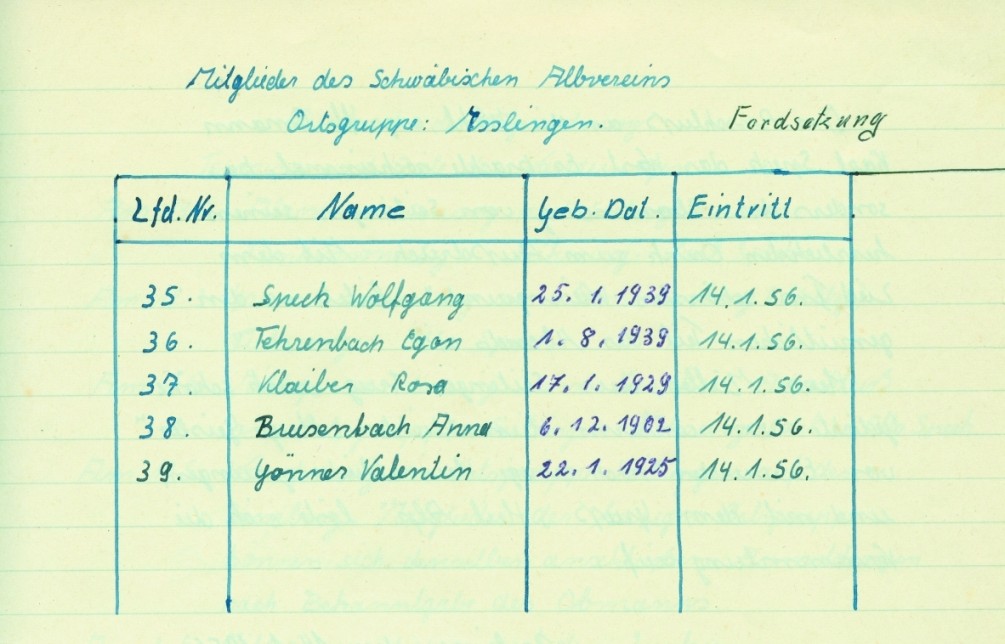 Mitglieder des Schwäbischen Albvereins
Ortsgruppe: Esslingen. Fordsetzung
Lfd. Nr. Name Geb. Dat. Eintritt
35. Spech Wolfgang 25. 1. 1939 14.1.56.
36. Fehrenbach Egon 1. 8. 1939 14.1.56.
37. Klaiber Rosa 17. 1. 1929 14.1.56.
38. Busenbach Anna 6. 12. 1902 14.1.56.
39. Gönner Valentin 22. 1. 1925 14.1.56.